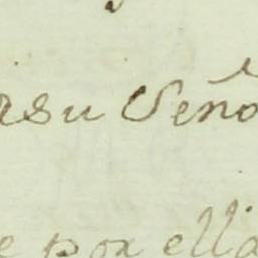 asu Seño
e por ella